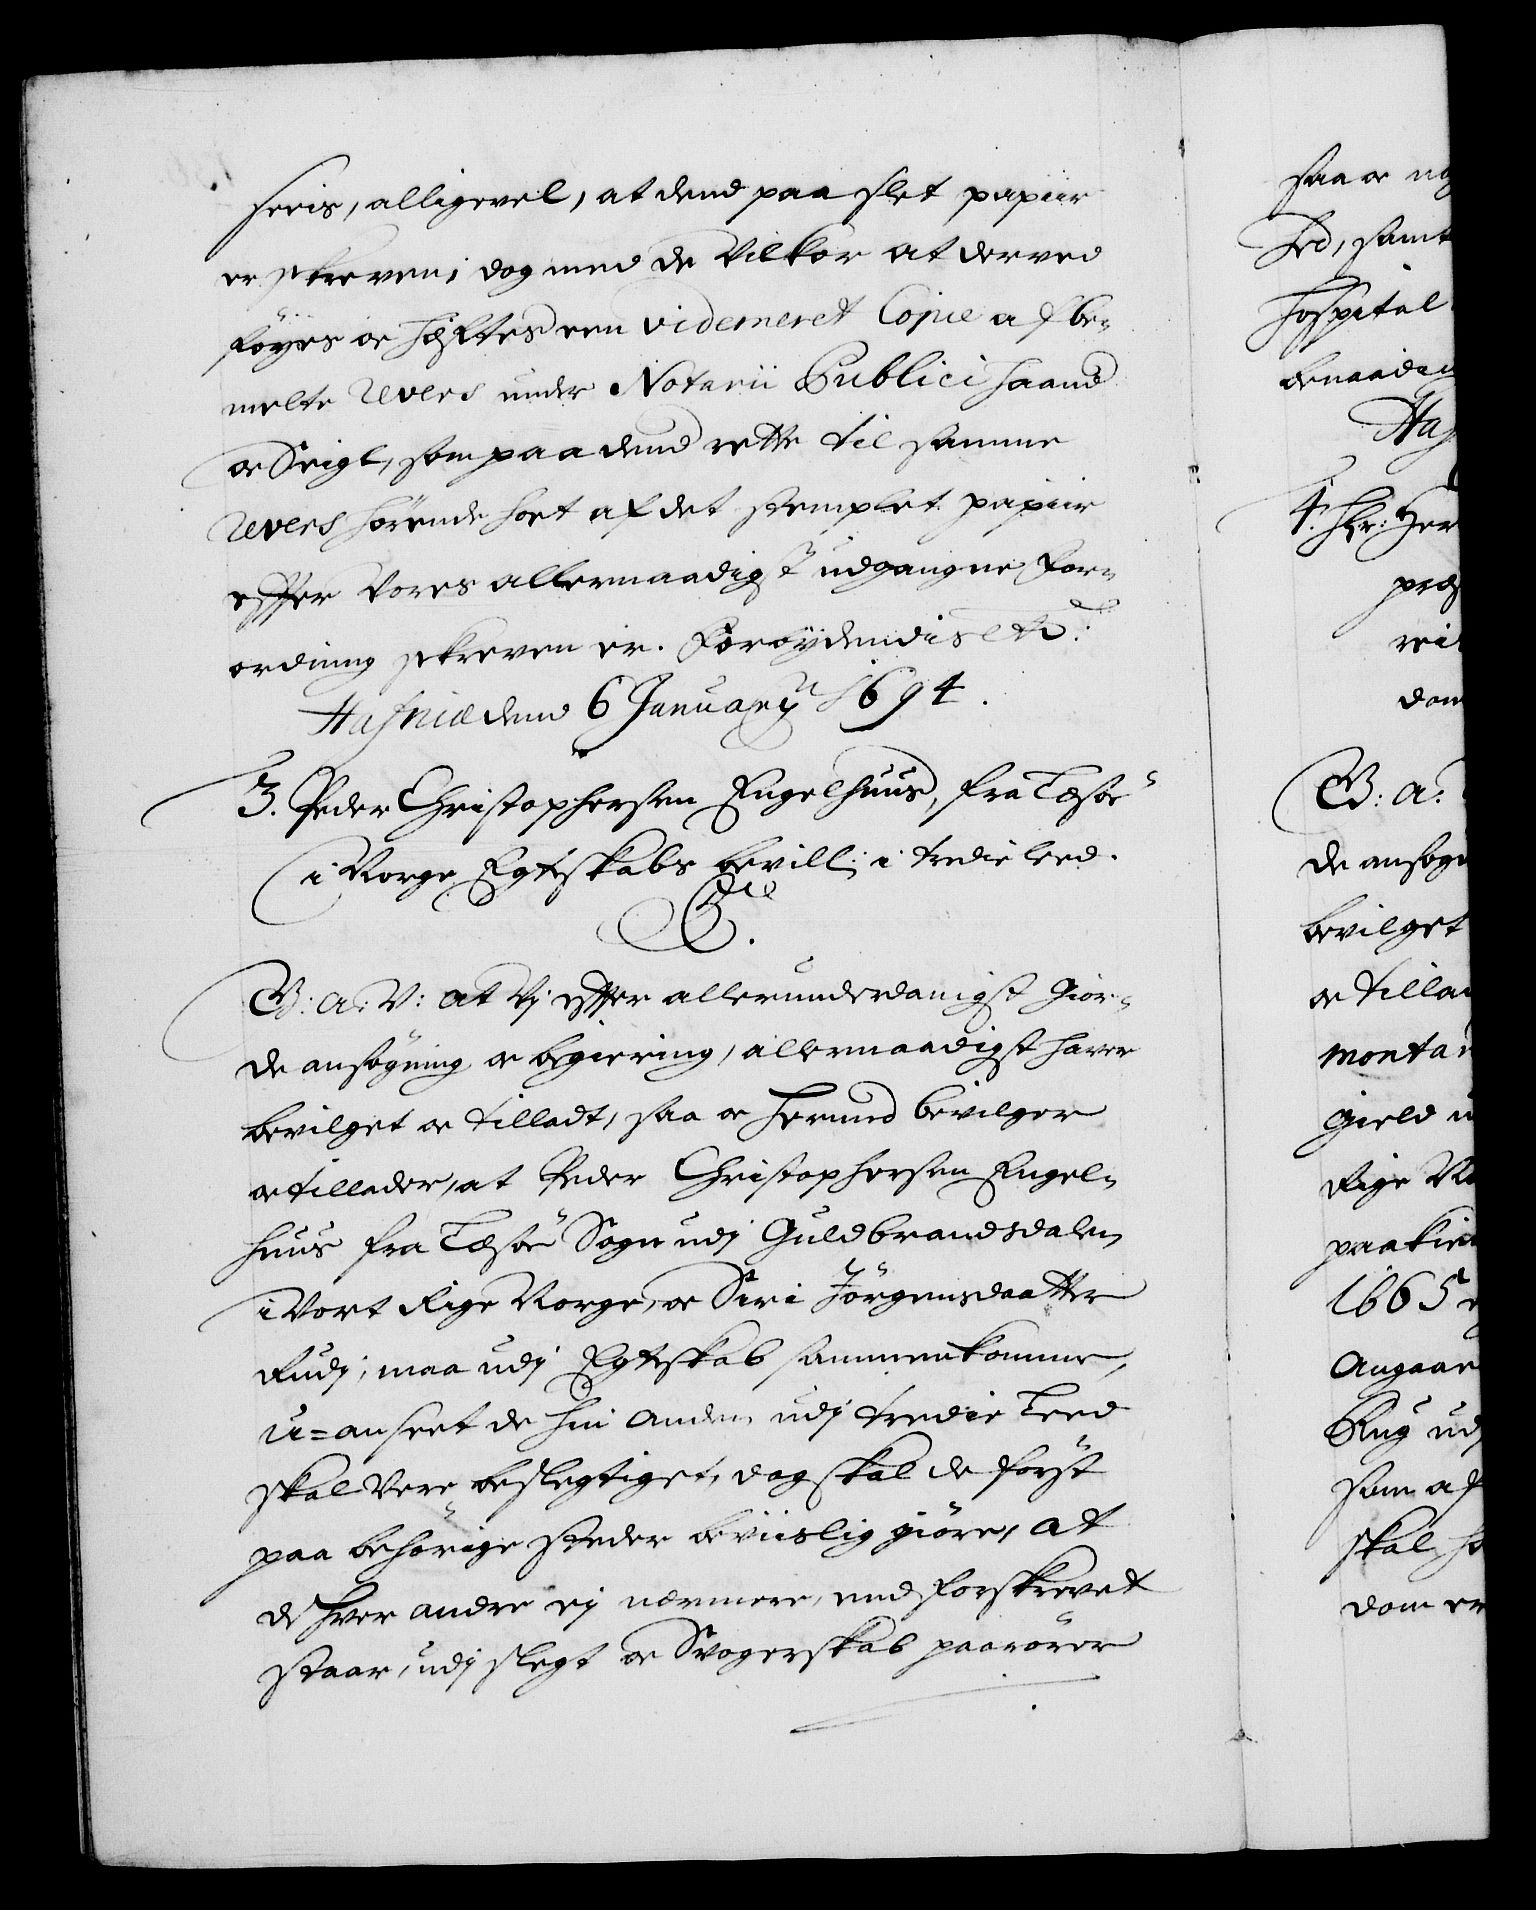 seris, alligevel, at dend paa slet papiir
er skreven, dog med de Vilkor at derved
føyes oc hefftes een videmeret Copie af be-
melte Revers under Notarii Publici haand
oc Seigl, som paa dend rette til samme
Revers hörende sort af det stemplet papiir
effter Vores allernaadigst udgangne For-
ordning skreven er. Forbydendis etc:
Hafniæ dend 6 January 1694.
3. Peder Christophersen Engelhuus, fra Læsöe
i Norge Egteskabs bevill: i tredie leed.
C5te
G: A: V: at Vi effter allerunderdanigst Gior-
de ansögning oc begiering, allernaadigst haver
bevilget oc tilladt, saa oc hermed bevilger
oc tillader, at Peder Christophersen Engel-
huus fra Læsöe Sogn udj Guldbrandsdalen
i Vort Rige Norge, oc Siri Jörgensdaatter
Rudj, maa udj Egteskab sammenkomme,
u=anseet de hin anden udj tredie Leed
skal Vere beslegtiget, dog skal de först
paa behörige steder beviislig giöre, at
de hver andre ej nermere, end forskrevet
staar, udj slegt oc Svogerskab paarörer
saa oc
hed, samt
Hospital
benaadig
Haf
4. Hr: Her
præ
vei
dom
G: A:
de ansög
bevilget
oc tilla
monta
Gield
Rige No
paakien
1665
Angaae
Rug udj
som af
skal
dom er